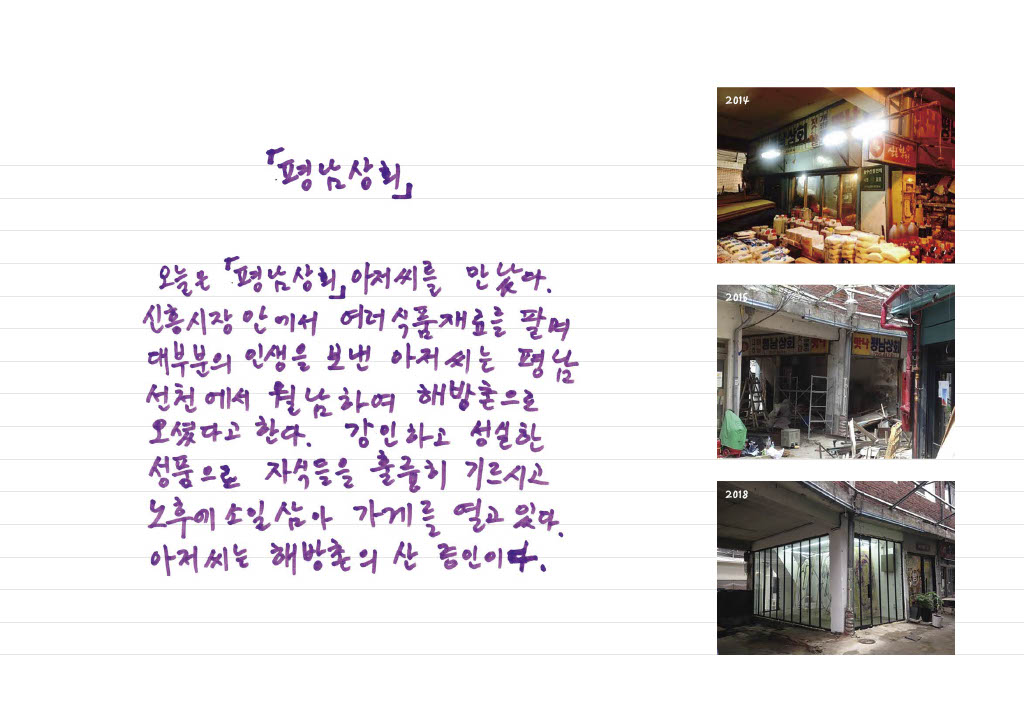 「평남상회」
오늘은 「평남상회」 아저씨를 만났다.
신흥시장 안에서 여러 식품재료를 팔며
대부분의 인생을 보낸 아저씨는 평남
선천에서 월남하여 해방촌으로
오셨다고 한다. 강인하고 성실한
성품으로 자식들을 훌륭히 기르시고
노후에 소일삼아 가게를 열고 있다.
아저씨는 해방촌의 산 증인이다.
2014
평남상회
2015
평남상회
평남상회
2018